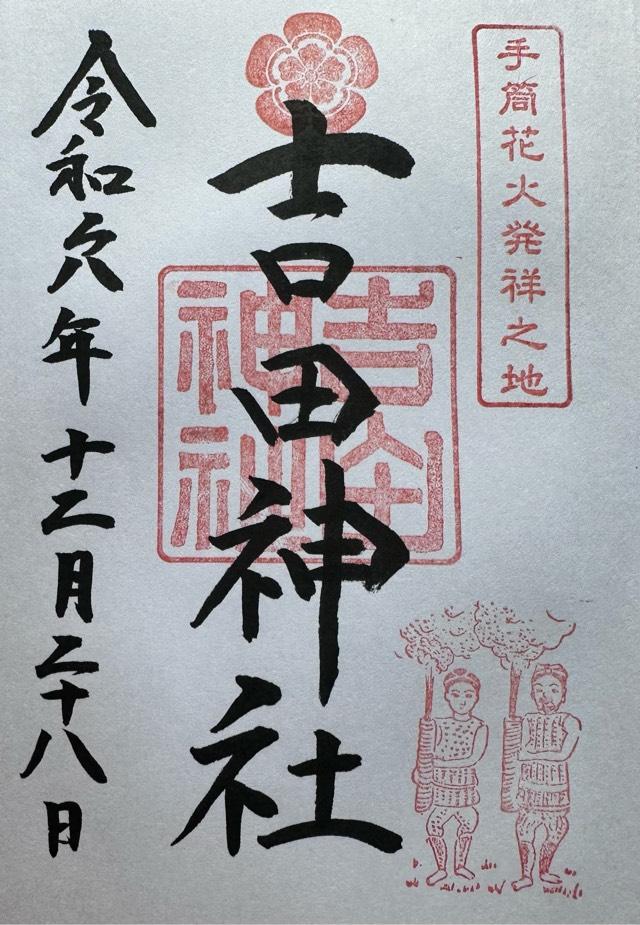 手筒花火発祥之地
吉田神社
吉田
神社
令和六年十二月二十八日